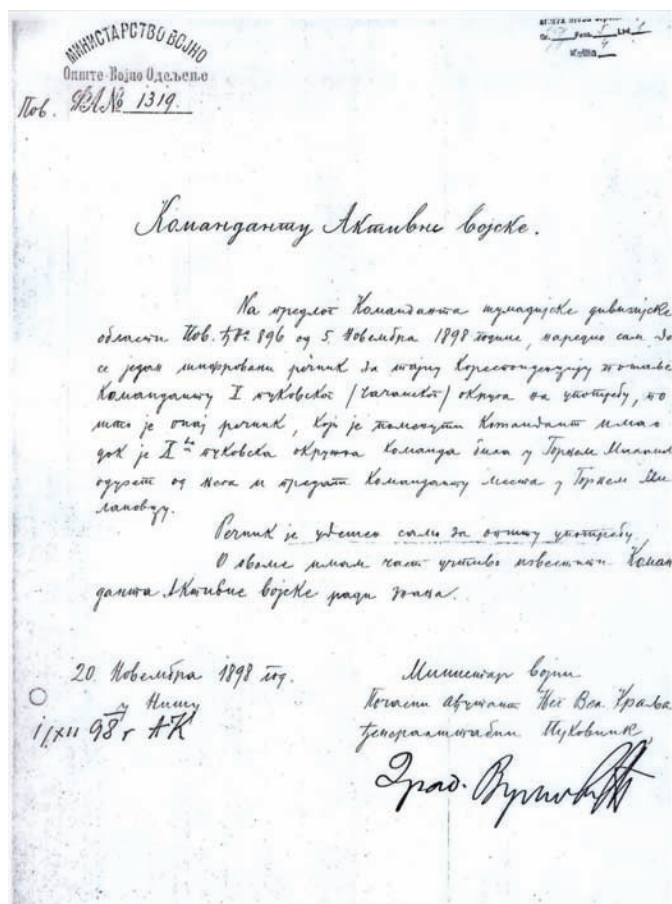 МИНИСТАРСТВО ВОЈНО
Опште-Војно Одељење
Пов. ЂА№ 1319.
Команданту Активне војске.
На предлог Команданта шумадијске дивизијске
области Пов. ђ№ 896 од 5. Новембра 1898 године, наредио сам да
се један шифровани речник за тајну кореспонденцију пошаље
Команданту X пуковског (чачанског) округа на употребу, по
што је онај речник, који је поменути Командант имао
док је X пуковска окружна команда била у Горњем Милан
одузет од њега и предати Команданту места у Горњем Ми
лановцу.
Речник је удешен само за општу употребу.
О овоме имам част учтиво известити Коман
данта Активне војске ради знања.
20. Новембра 1898 год.
у Нишу
98 г АК
Министар војни
Почасни ађутант Њег. Вел. Краља
ђенералштабни Пуковник,
Драг. Вучковић